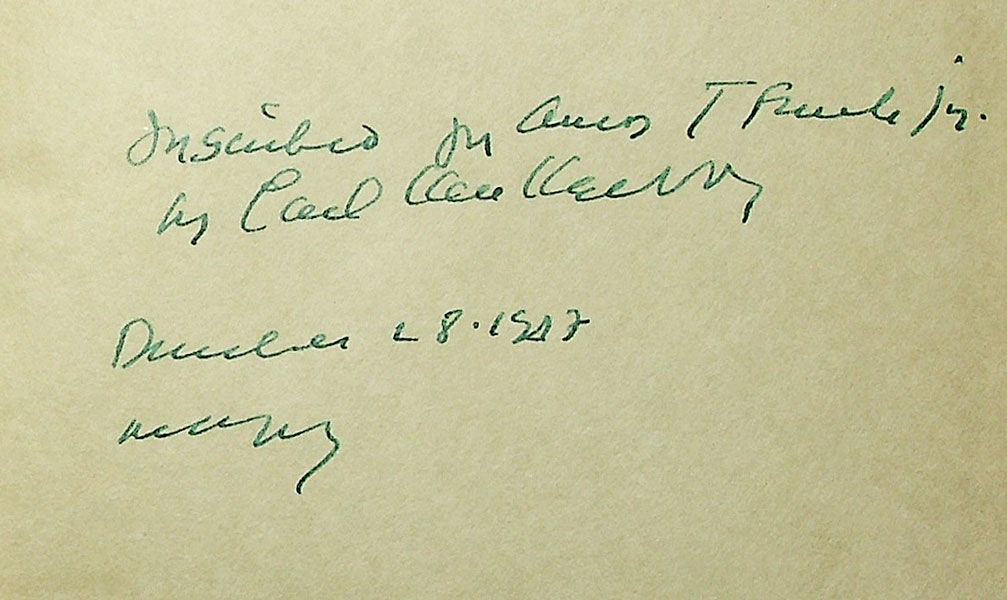 Inscribed for Amos T jr.
by Carl Van Vechten
December 28·1947